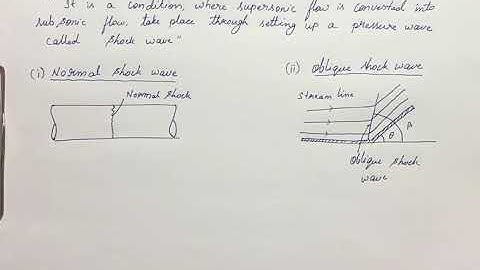 It is a condition, where supersonic flow is converted into
subsonic flow, take place through setting up a pressure wave
called shock wave"
(i) Normal shock wave
(ii) Oblique shock wave
Normal Shock
Stream line
θ
Oblique shock
wave